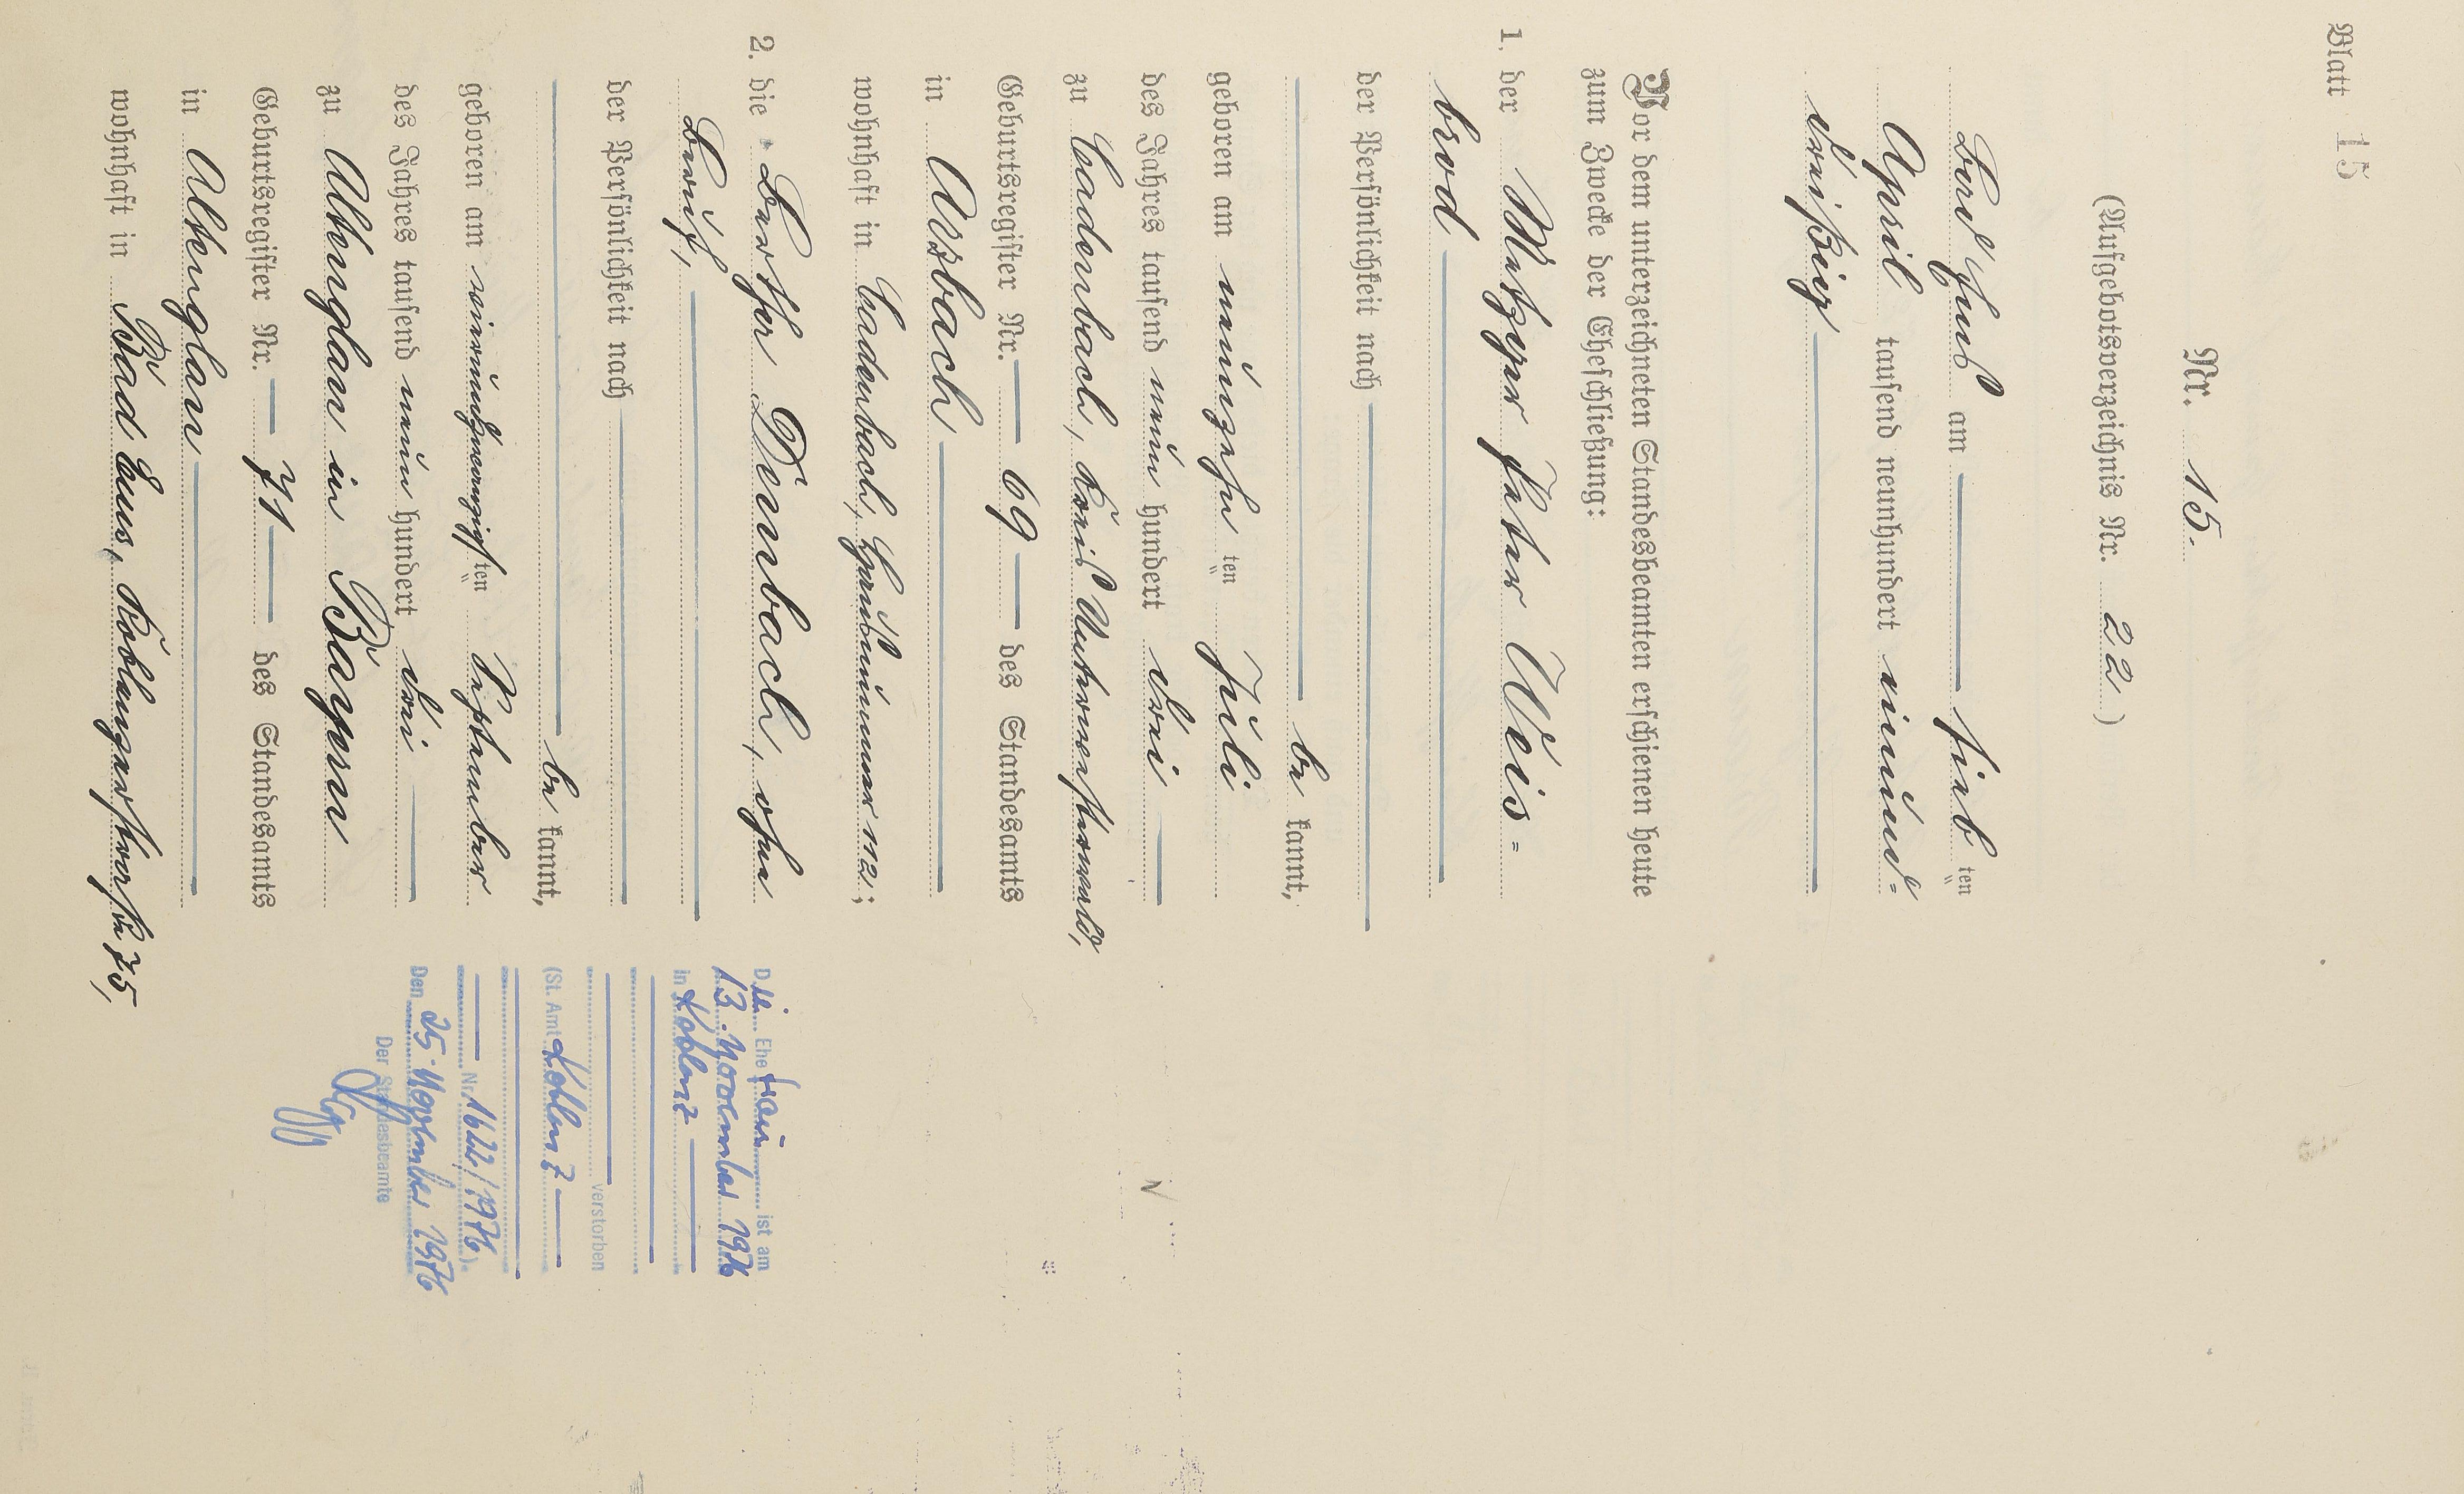 Blatt 15
Nr. 15.
(Aufgebotsverzeichnis Nr. 22)
Bad Ems am — sieb ten
April tausend neunhundert einund=
dreißig
Vor dem unterzeichneten Standesbeamten erschienen heute
zum Zwecke der Eheschließung:
1. der Metzger Peter Weis=
brod
der Persönlichkeit nach
be kannt,
geboren am neunzehn ten Juli
des Jahres tausend neun hundert drei
zu Cadenbach, Kreis Unterwesterwald,
Geburtsregister Nr. 69 des Standesamts
in Arzbach
wohnhaft in Cadenbach, Hausnummer 112;
2. die Bertha Dennbach, ohne
Beruf,
der Persönlichkeit nach
be kannt,
geboren am einundzwanzigs ten September
des Jahres tausend neun hundert drei
zu Altenglan in Bayern
Geburtsregister Nr. 71 des Standesamts
in Altenglan
wohnhaft in Bad Ems, Koblenzerstraße 75,
Die Ehefrau ist am
13. November 1976
in Koblenz
verstorben
(St. Amt Koblenz
Nr. 1622/1976).
Den 25. November 1976
Der Standesbeamte